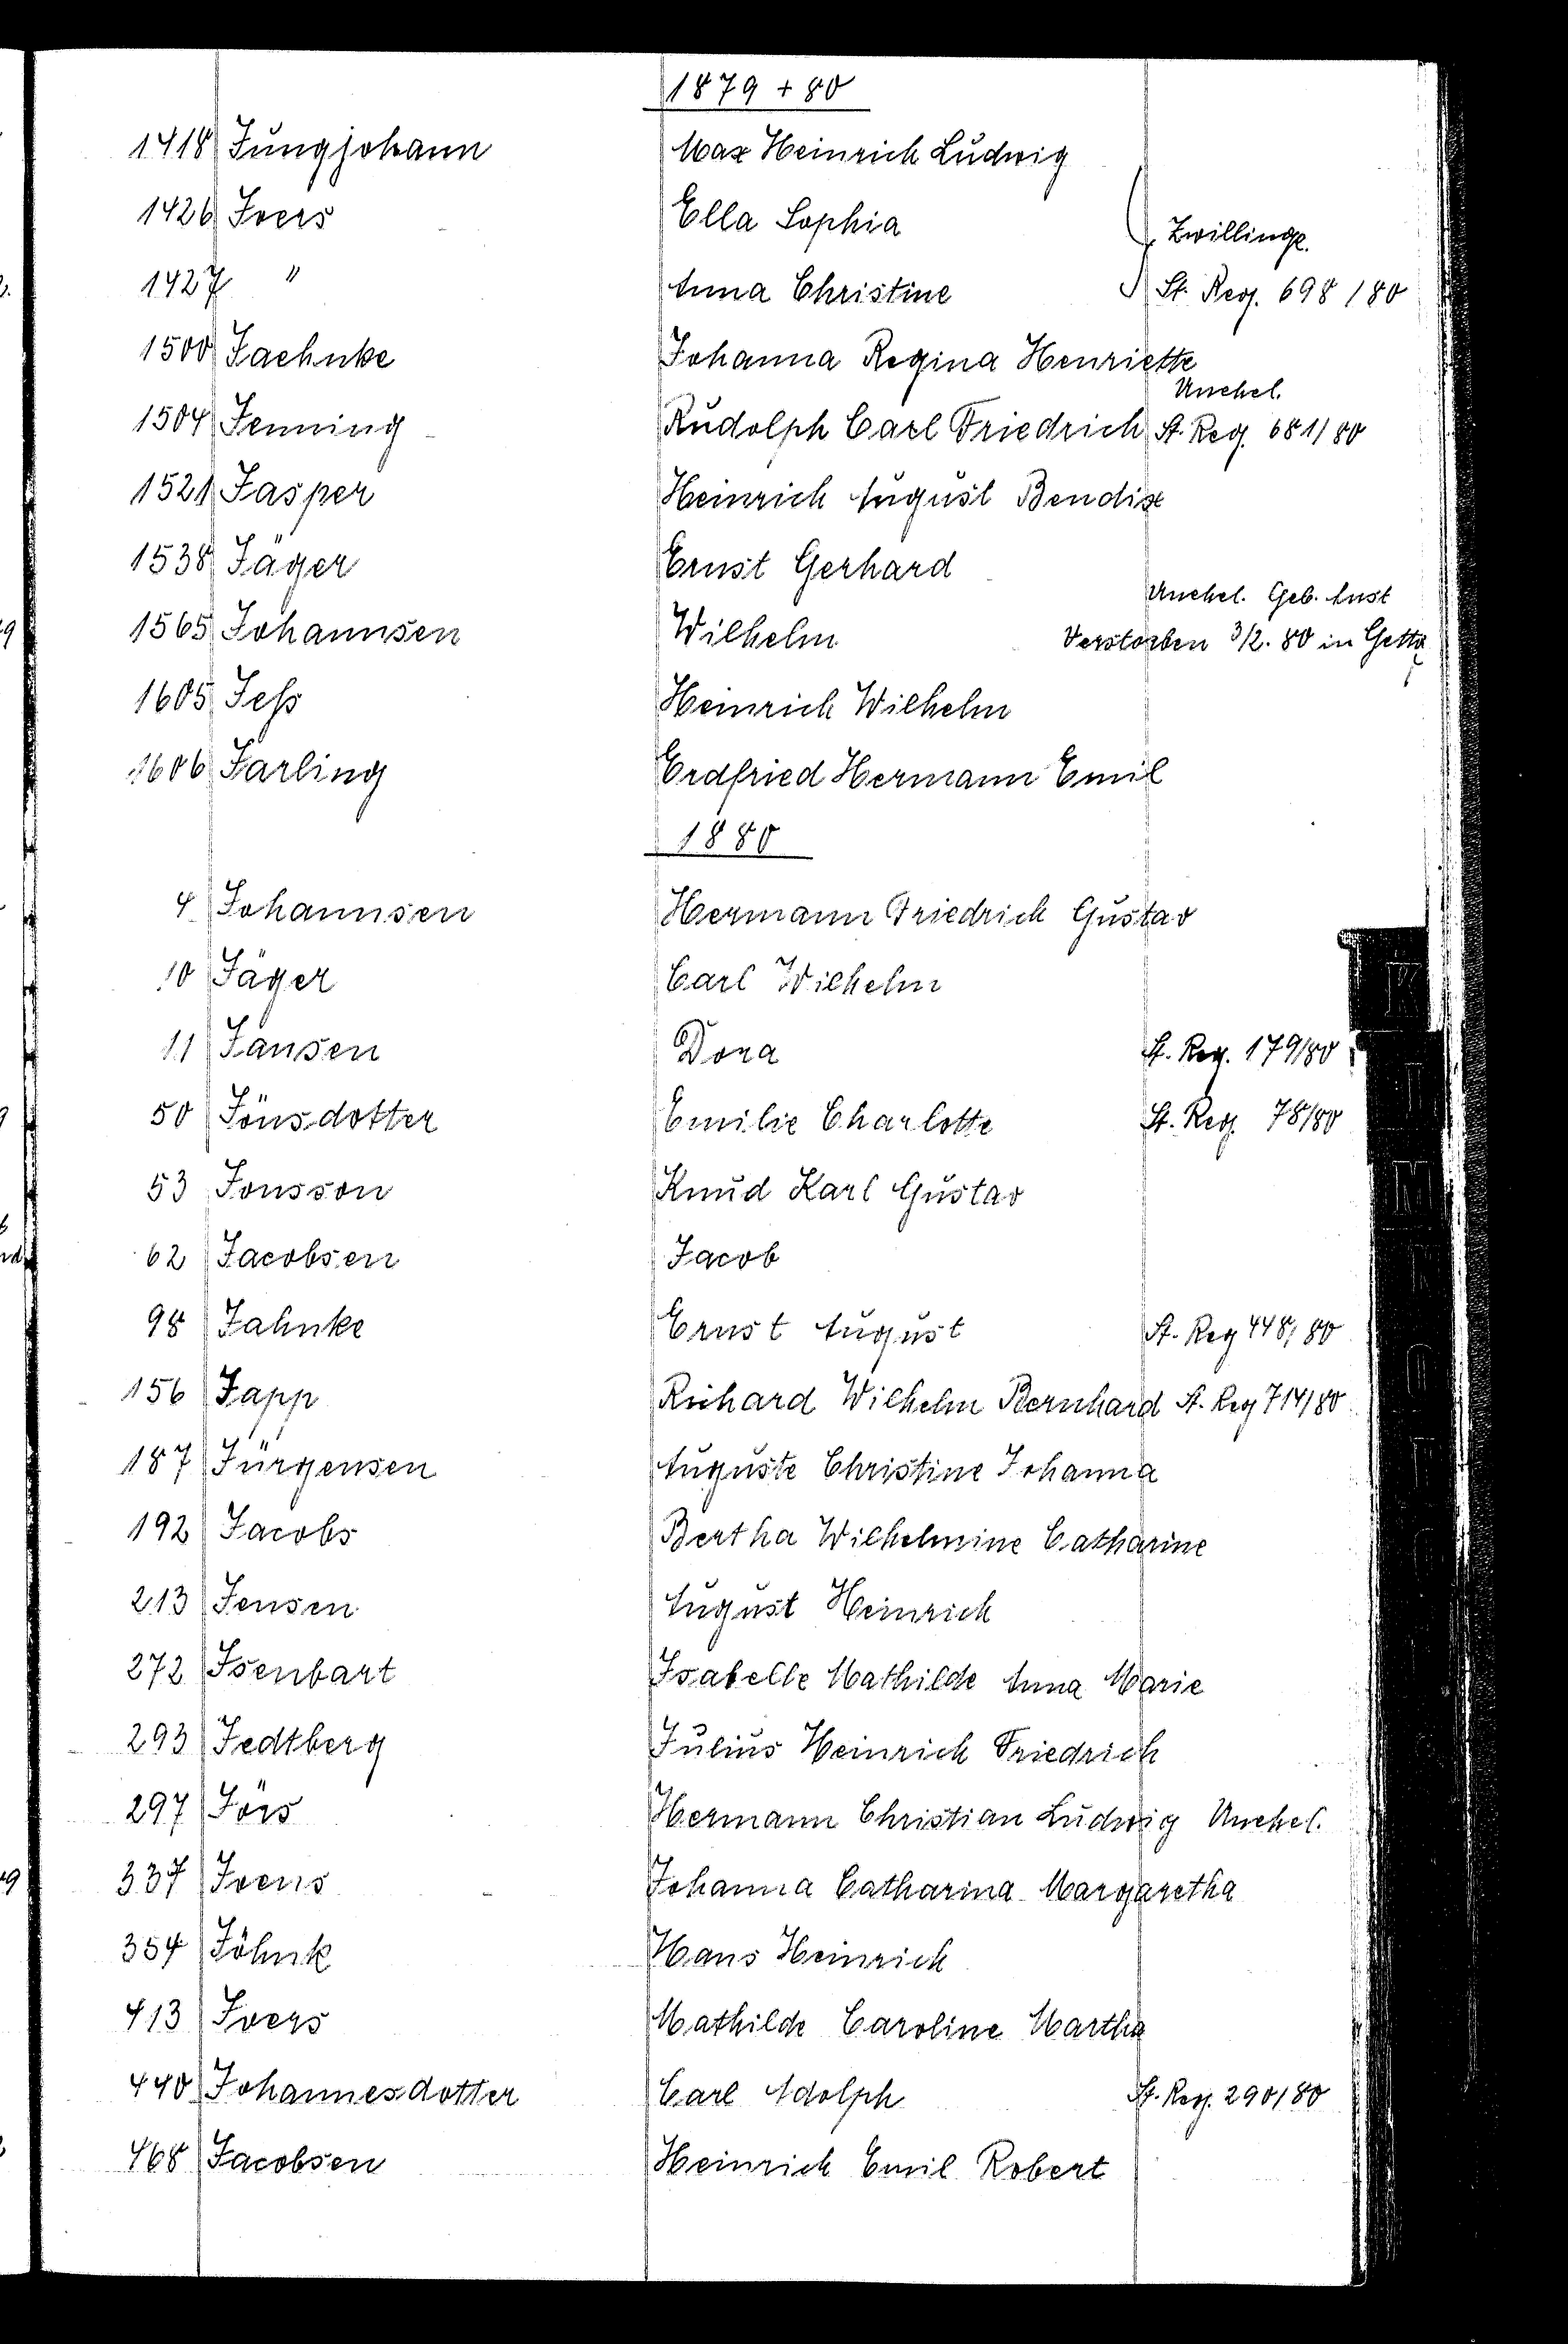 1879 + 80
1418 Jungjohann Max Heinrich Ludwig
1426 Ivers Ella Sophia Zwillinge.
1427 " Anna Christine St. Reg. 698/80
1500 Jaehnke Johanna Regina Henriette
Unehel.
1504 Jenning Rudolph Carl Friedrich St. Reg. 681/80
1521 Jasper Heinrich August Bendix
1538 Jäger Ernst Gerhard
Unehel. Geb. Anst
1565 Johannsen Wilhelm Verstorben 3/2. 80 in
1605 Jeß Heinrich Wilhelm
1606 Jarling Erdfried Hermann Emil
1880
4 Johannsen Hermann Friedrich Gustav
10 Jäger Carl Wilhelm
11 Jansen Dora St. Reg. 179/80
50 Jönsdotter Emilie Charlotte St. Reg. 78/80
53 Jonsson Knud Karl Gustav
62 Jacobsen Jacob
98 Jahnke Ernst August St. Reg 448/80
156 Japp Richard Wilhelm Bernhard St. Reg 714/80
187 Jürgensen Auguste Christine Johanna
192 Jacobs Bertha Wilhelmine Catharine
213 Jensen August Heinrich
272 Isenbart Isabelle Mathilde Anna Marie
293 Jedtberg Julius Heinrich Friedrich
297 Jörs Hermann Christian Ludwig Unehel.
337 Ivens Johanna Catharina Margaretha
354 Jöhnk Hans Heinrich
413 Ivers Mathilde Caroline Martha
440 Johannesdotter Carl Adolph St. Reg. 290/80
468 Jacobsen Heinrich Emil Robert